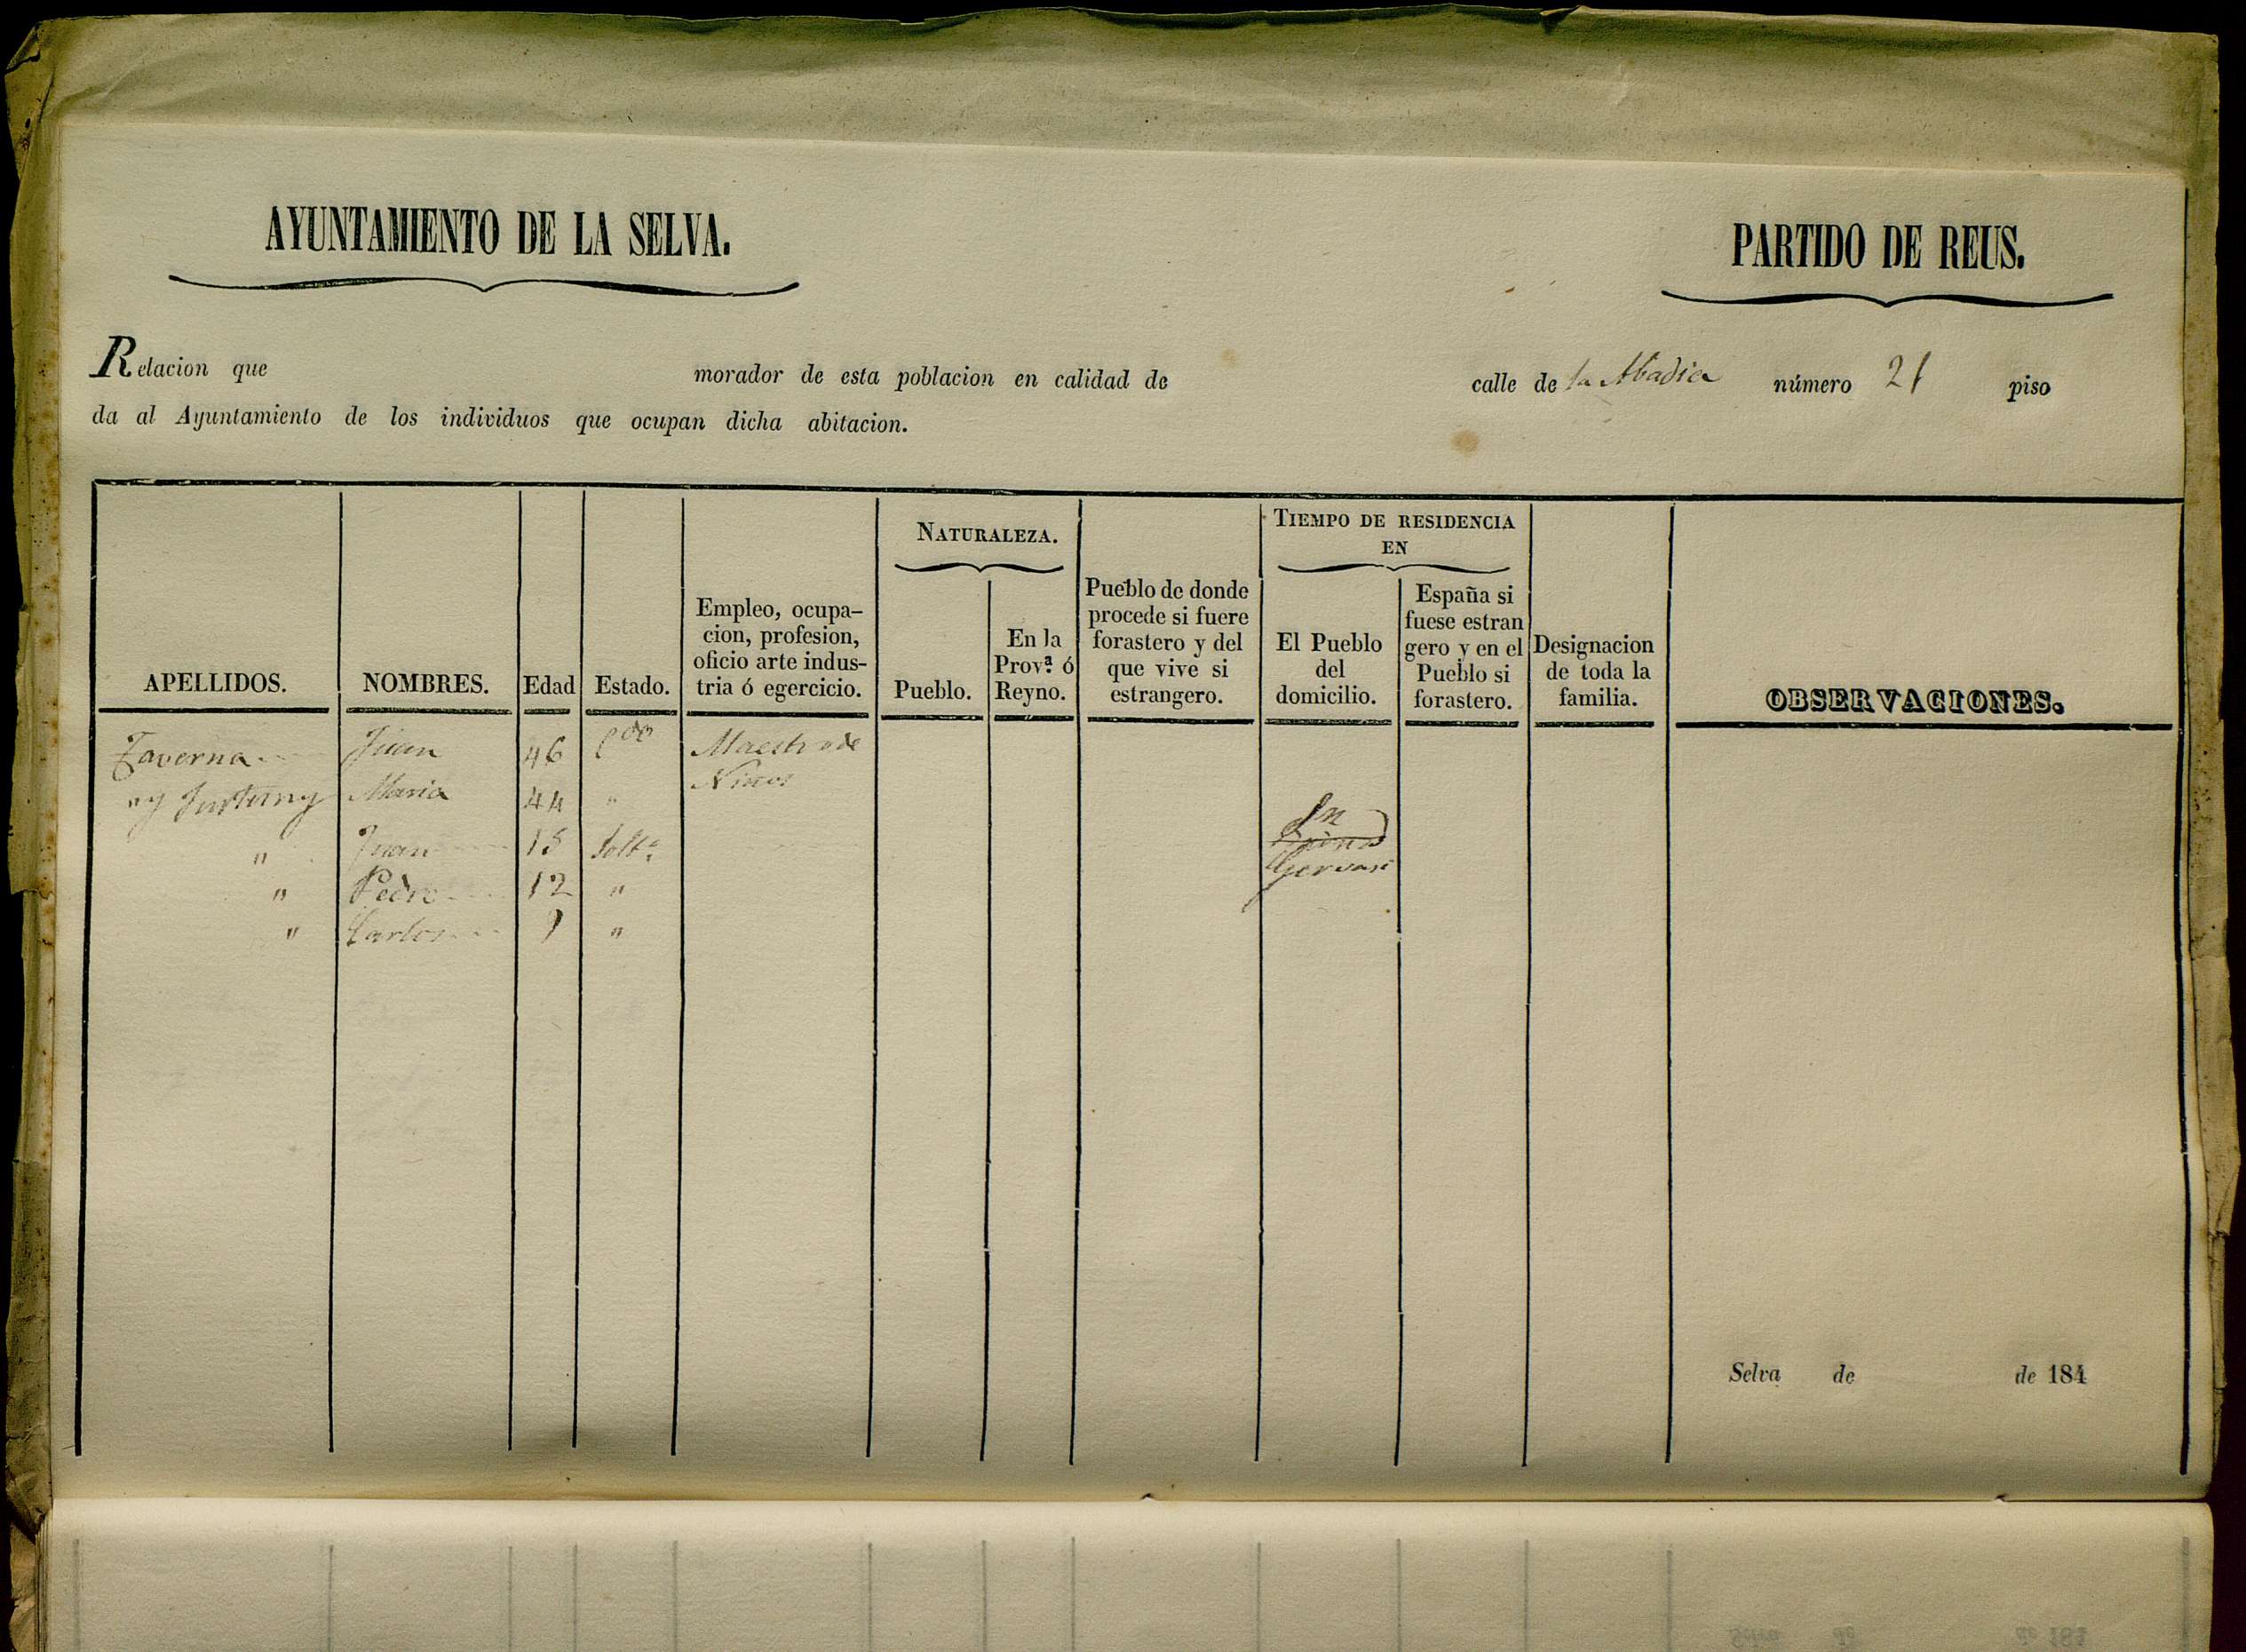 AYUNTAMIENTO DE LA SELVA.
PARTIDO DE REUS.
Relacion que morador de esta poblacion en calidad de calle de la Abadia número 21 piso
da al Ayuntamiento de los individuos que ocupan dicha abitacion.
APELLIDOS.
NOMBRES.
Edad
Estado.
Empleo, ocupa-
cion, profesion,
oficio arte indus-
tria ó egercicio.
NATURALEZA.
Pueblo.
En la
Provª. ó
Reyno.
Pueblo de donde
procede si fuere
forastero y del
que vive si
estrangero.
TIEMPO DE RESIDENCIA
EN
El Pueblo
del
domicilio.
España si
fuese estran
gero y en el
Pueblo si
forastero.
Designacion
de toda la
familia.
OBSERVACIONES.
Taverna Juan 46 Cdo Maestro de
Niños
" y Fortuny Maria 44 "
" Juan 15 Soltº
" Pedro 12 "
" Carlos 9 "
Gervasi
Selva de de 184